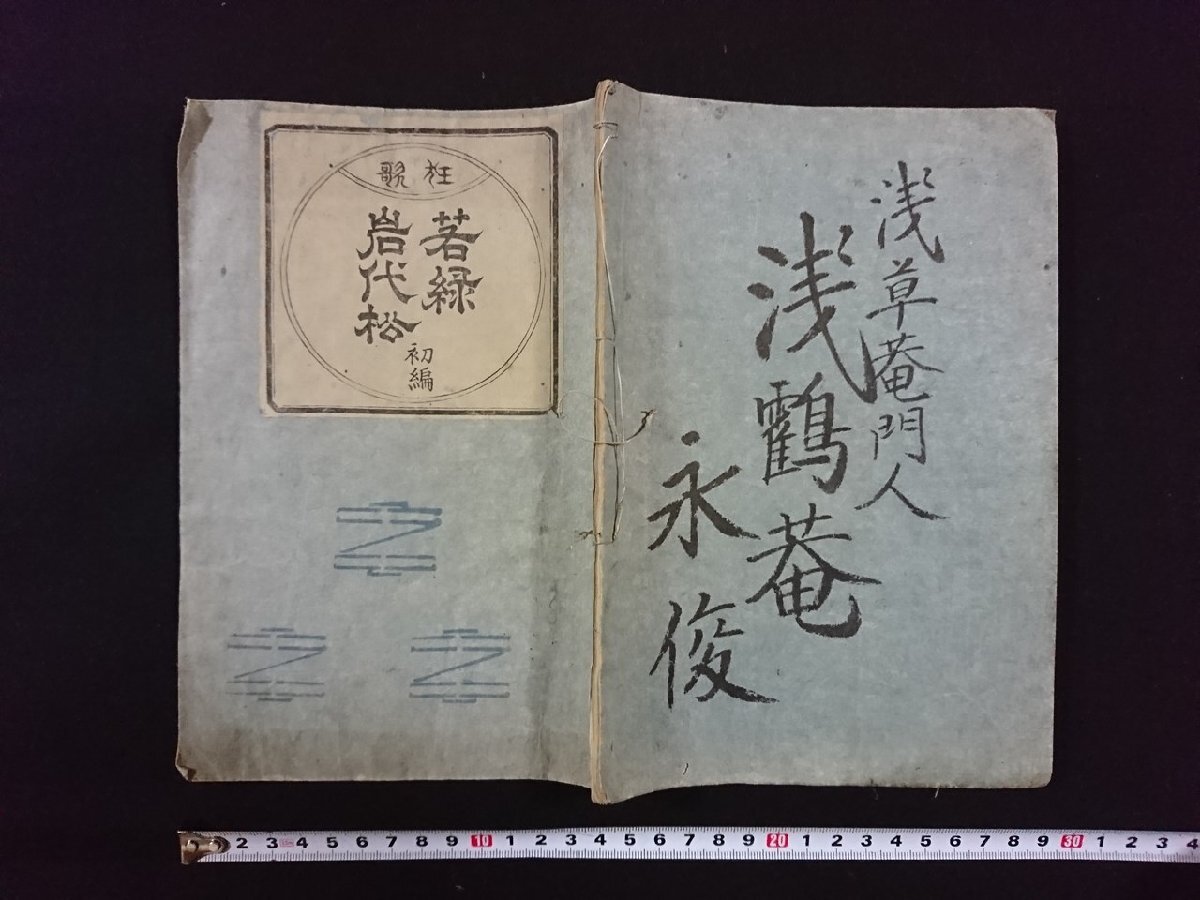 狂歌
若緑
岩代松
初編
浅草菴門人
浅鶴菴
永俊
2 3 4 5 6 7 8 9 10 1 2 3 4 5 6 7 8 9 20 1 2 3 4 5 6 7 8 9 30 1 2 3 4